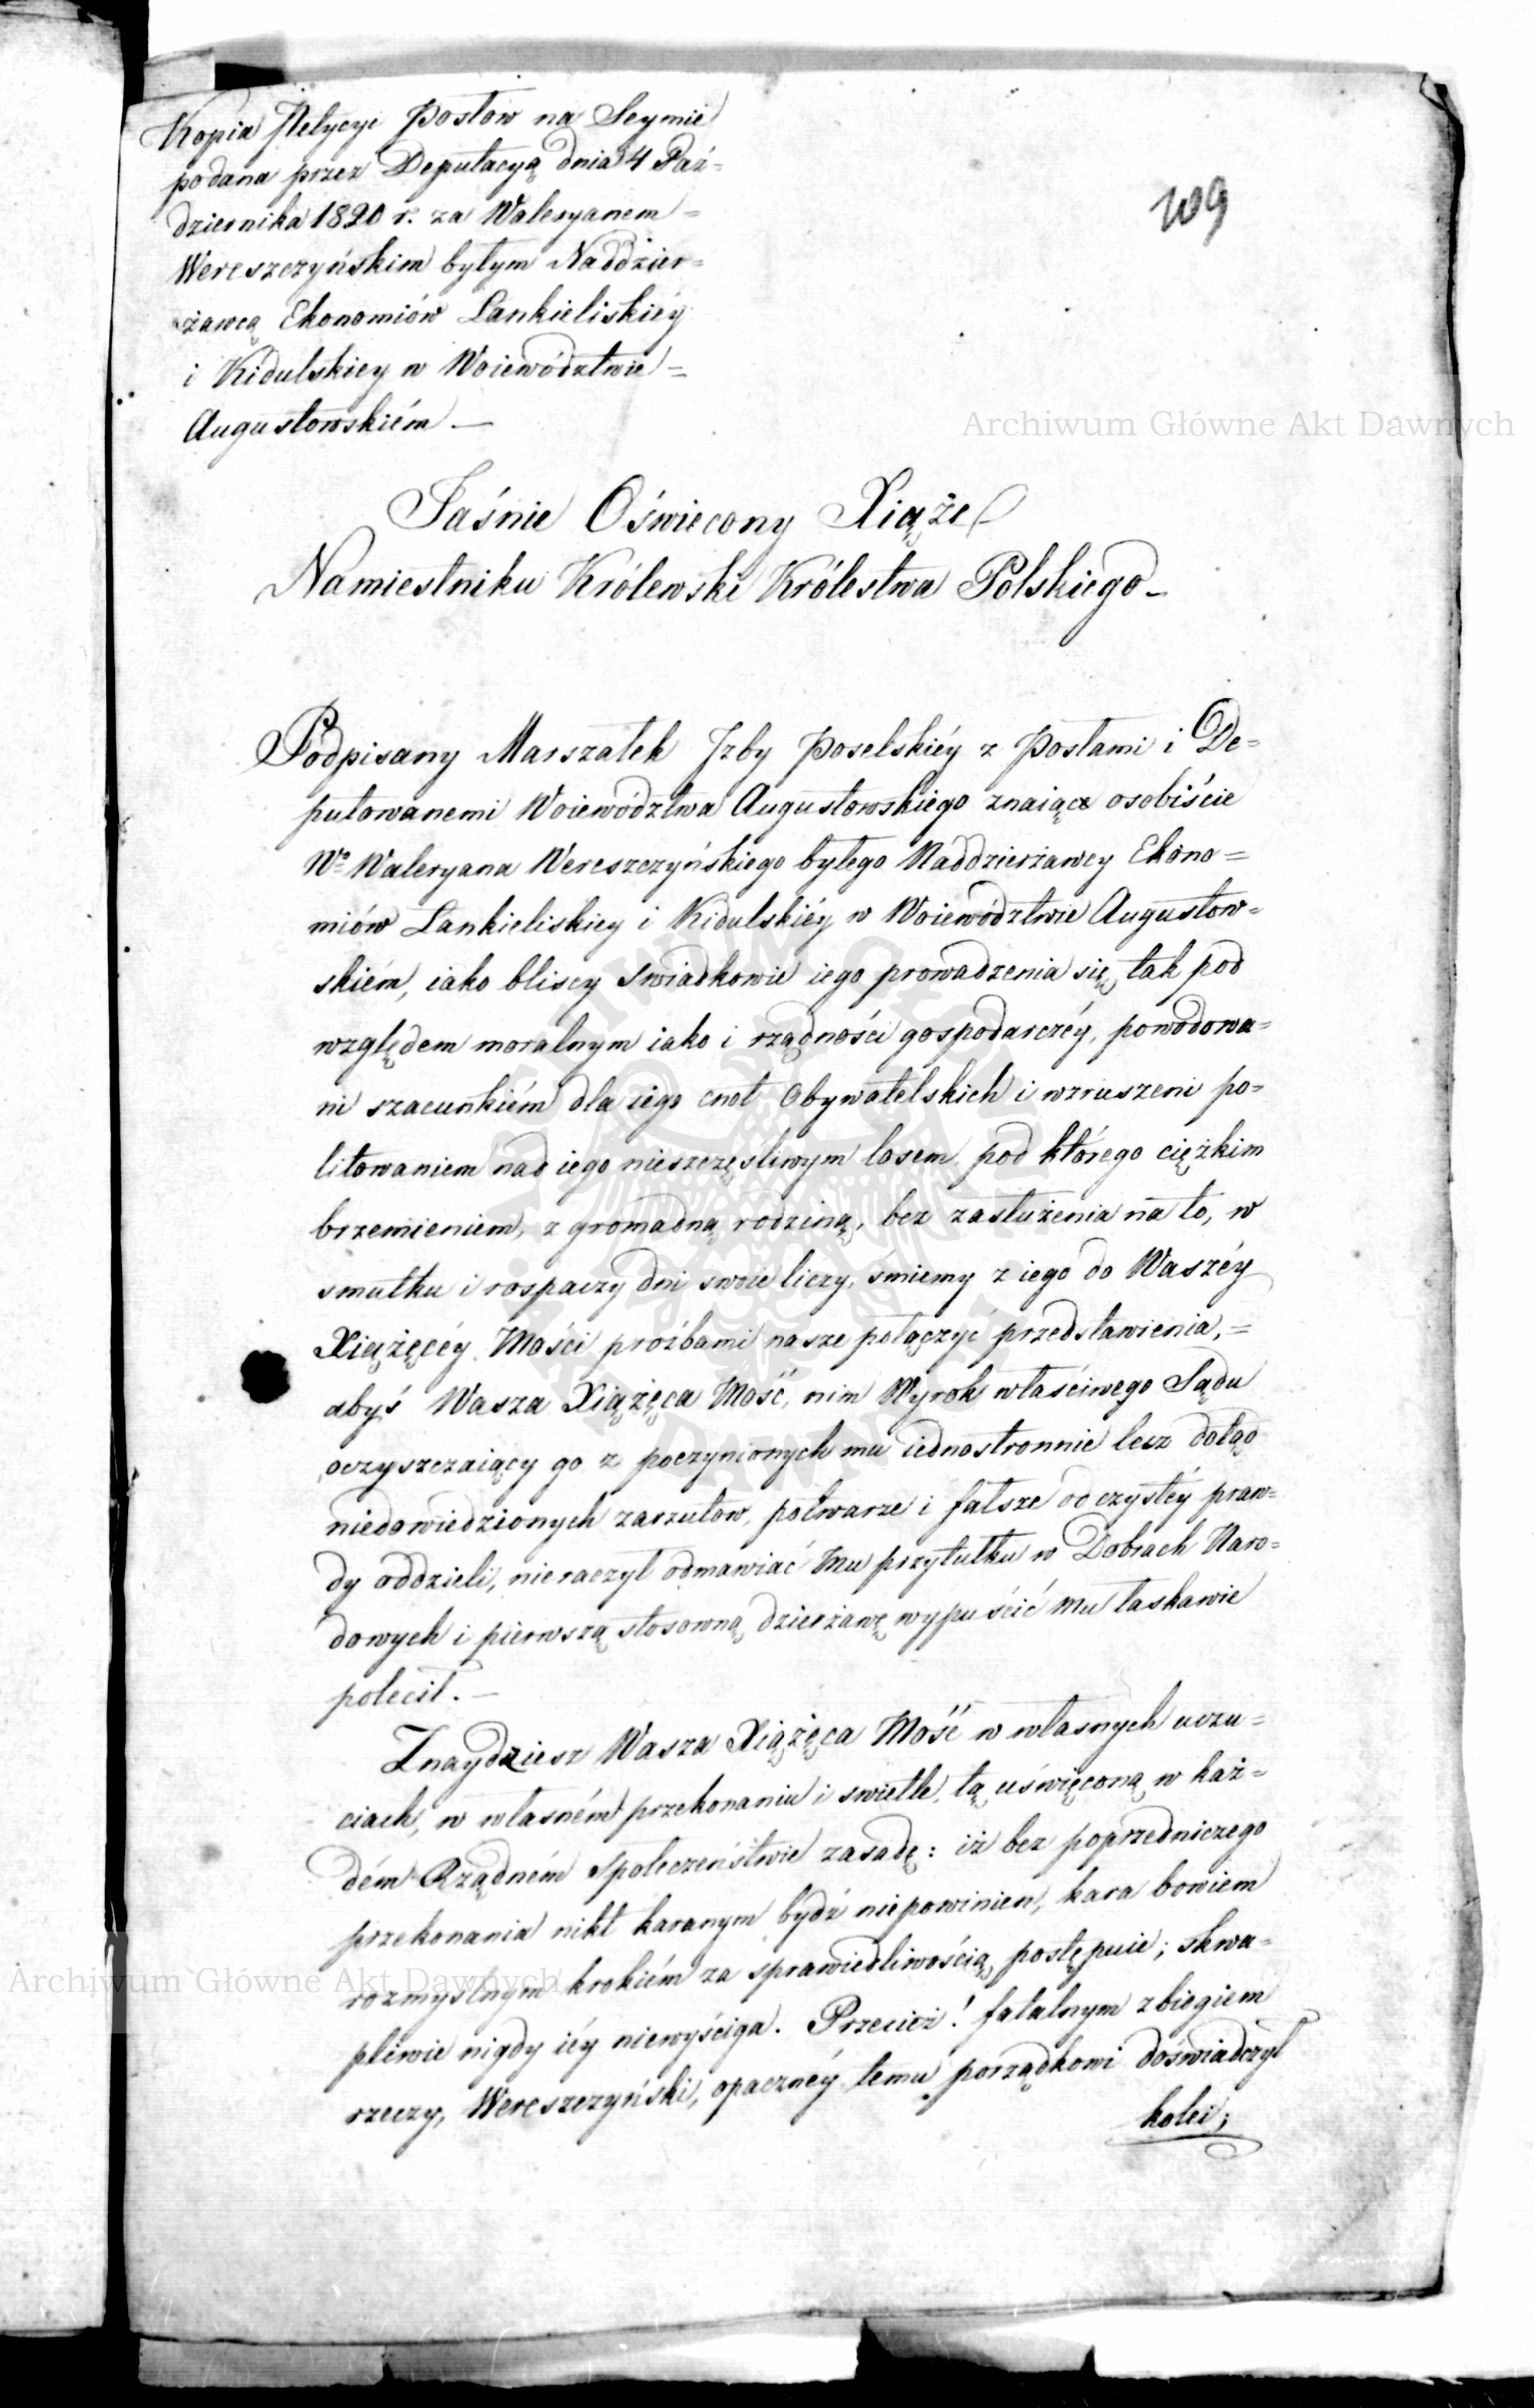 Kopia Petycyi Posłow na Seymie
podana przez Deputacyą dnia 4 Paź=
dziernika 1820 r. za Waleryanem =
Wereszczyńskim byłym Naddzier=
żawcą Ekonomiów Lankieliskiéy
i Kidulskiey w Woiewództwie =
Augustowskiém —
109
Archiwum Główne Akt Dawnych
Jaśnie Oświecony Xiąże
Namiestniku Królewski Królestwa Polskiego —
Podpisany Marszałek Jzby Poselskiéy z Posłami i De=
putowanemi Woiewództwa Augustowskiego znaiące osobiście
Wo Waleryana Wereszczyńskiego byłego Naddzierżawcy Ekono=
miów Lankieliskiey i Kidulskiéy w Woiewództwie Augustow=
skiém, iako bliscy swiadkowie iego prowadzenia się, tak pod
względem moralnym iako i rządności gospodarczéy, powodowa=
ni szacunkiém dla iego cnot Obywatelskich i wzruszeni po=
litowaniem nad iego nieszczęśliwym losem, pod którego ciężkim
brzemieniem, z gromadną rodziną, bez zasłużenia na to, w
smutku i rospaczy dni swoie liczy, śmiemy z iego do Waszéy
Xiążęcéy Mości prośbami nasze połączyć przedstawienia, =
abyś Wasza Xiążęca Mość, nim Wyrok właściwego Sądu
oczyszczaiący go z poczynionych mu iednostronnie lecz dotąd
niedowiedzionych zarzutow, potwarze i fałsze od czystéy praw=
dy oddzieli, nieraczył odmawiać Mu przytułku w Dobrach Naro=
dowych i pierwszą stosowną dzierżawę wypuścić Mu łaskawie
polecił. —
Znaydziesz Wasza Xiążęca Mość w własnych uczu=
ciach, w własném przekonaniu i swietle, tą uświęconą w każ=
dém Rządném społeczeństwie zasadę: iż bez poprzedniczego
przekonania nikt karanym bydź niepowinien, kara bowiem
rozmyslnym krokiém za sprawiedliwością postępuie; skwa=
pliwie nigdy iéy niewyściga. Przecież! fatalnym zbiegiem
rzeczy, Wereszczyński, opacznéy temu porządkowi doświadczył
kolei;
Archiwum Główne Akt Dawnych